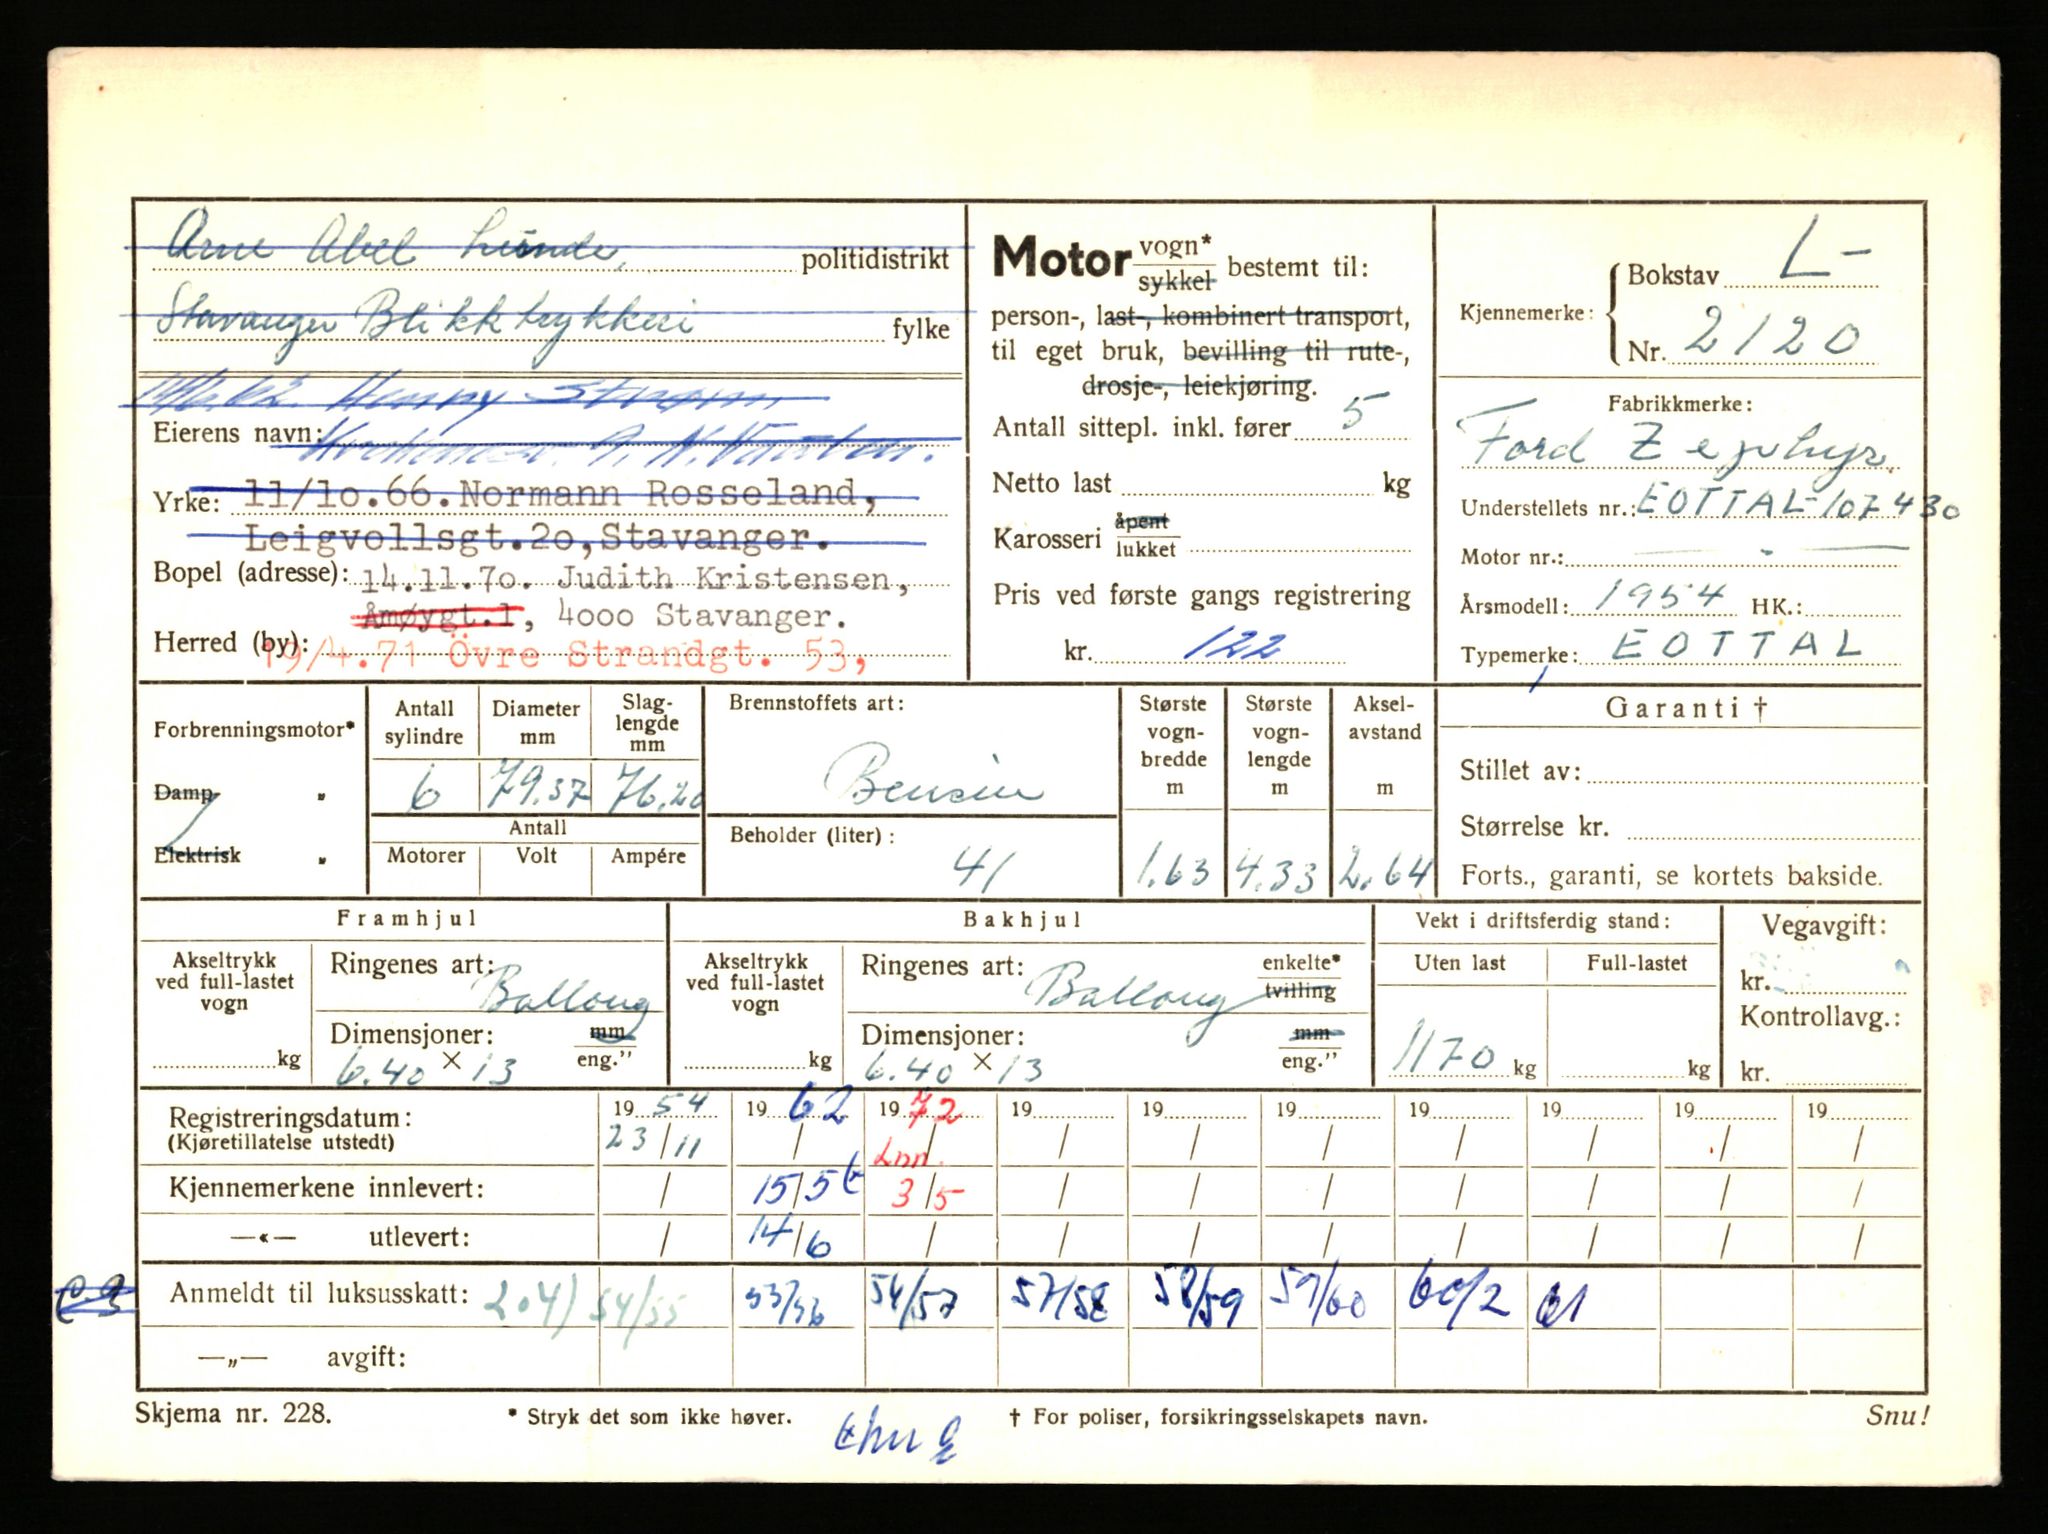 Arne Abel Lunde, politidistrikt
Stavanger Blikktrykkeri fylke
Henry Strøm
Eierens navn:
Yrke: 11/10.66. Normann Rosseland,
Leigvollsgt.20, Stavanger.
Bopel (adresse): 14.11.70. Judith Kristensen,
Åmøygt.1, 4000 Stavanger.
Herred (by): 19/4.71 Övre Strandgt. 53,
Motor vogn* sykkel bestemt til:
person-, last-, kombinert transport,
til eget bruk, bevilling til rute-,
drosje-, leiekjøring.
Antall sittepl. inkl. fører 5
Netto last kg
Karosseri åpent lukket
Pris ved første gangs registrering
kr. 122
Kjennemerke: Bokstav L-
Nr. 2120
Fabrikkmerke:
Ford Zephyr
Understellets nr.: EOTTAL-107430
Motor nr.: -
Årsmodell: 1954 HK.:
Typemerke: EOTTAL
Forbrenningsmotor*
Damp "
Elektrisk "
Antall sylindre 6
Diameter mm 79.37
Slaglengde mm 76.20
Antall
Motorer Volt Ampére
Brennstoffets art:
Bensin
Beholder (liter):
41
Største vognbredde m 1.63
Største vognlengde m 4.33
Akselavstand m 2.64
Garanti †
Stillet av:
Størrelse kr.
Forts., garanti, se kortets bakside.
Framhjul
Akseltrykk ved full-lastet vogn kg
Ringenes art: Ballong
Dimensjoner: mm eng."
6.40 × 13
Bakhjul
Akseltrykk ved full-lastet vogn kg
Ringenes art: Ballong enkelte* tvilling
Dimensjoner: mm eng."
6.40 × 13
Vekt i driftsferdig stand:
Uten last Full-lastet
1170 kg kg
Vegavgift:
kr.
Kontrollavg.:
kr.
Registreringsdatum: 19 54 19 62 19 72 19 19 19 19 19 19 19
(Kjøretillatelse utstedt) 23/11 / / / / / / / / /
Inn.
Kjennemerkene innlevert: / 15/5 3/5 / / / / / / /
—«— utlevert: / 14/6 / / / / / / / /
Anmeldt til luksusskatt: 204) 54/55 55/56 56/57 57/58 58/59 59/60 60/2 61
—„— avgift:
Skjema nr. 228. * Stryk det som ikke høver. † For poliser, forsikringsselskapets navn. Snu!